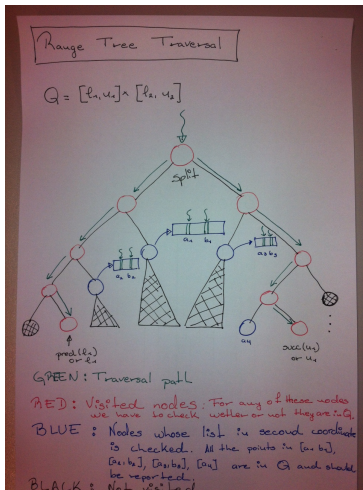 Range Tree Traversal
Q = [l₁,u₁]×[l₂,u₂]
split
a₁ b₁
a₂ b₂
a₃ b₃
a₄
pred(l₁)
or l₁
succ(u₁)
or u₁
GREEN: Traversal path
RED: Visited nodes: For any of these nodes
we have to check wether or not they are in Q.
BLUE: Nodes whose list in second coordinate
is checked. All the points in [a₁ b₁],
[a₂; b₂], [a₃; b₃], [a₄] are in Q and should
be reported.
BLACK: Not visited